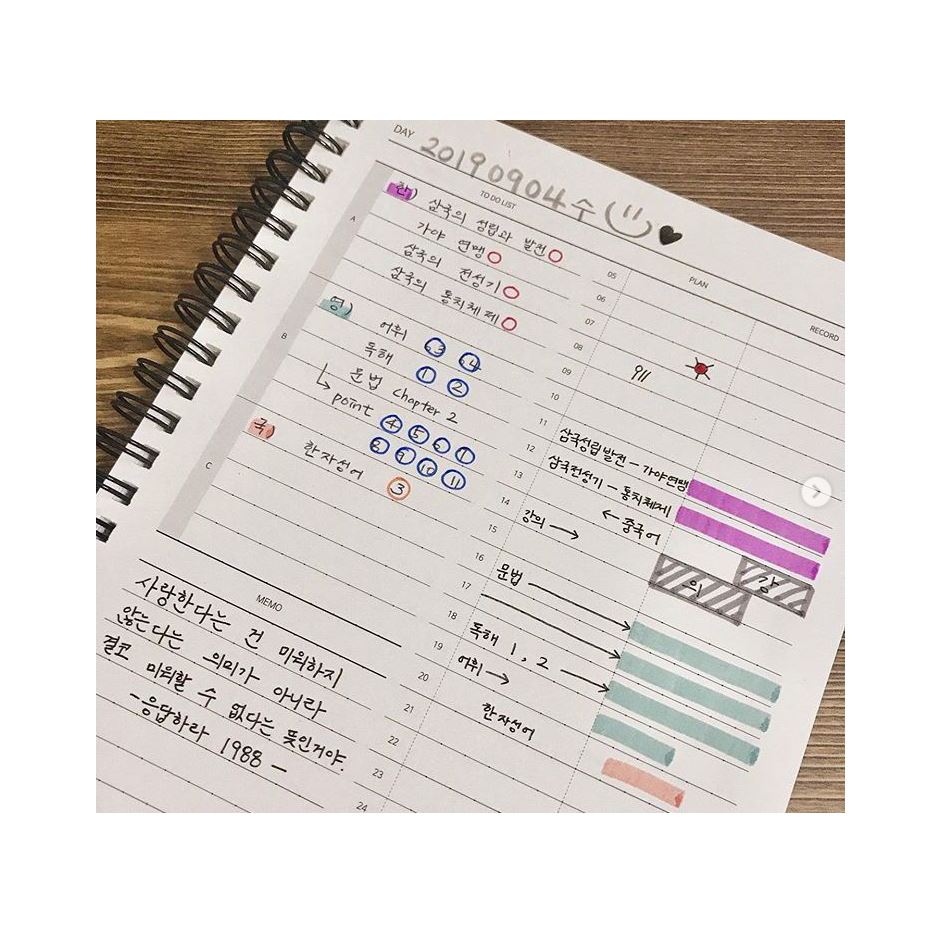 DAY 20190904 수
TO DO LIST
A
한) 삼국의 성립과 발전
가야 연맹
삼국의 전성기
삼국의 통치체제
B
영)
어휘 63 64
독해 1 2
↳ 문법 Chapter 2
point 4 5 6 7
8 9 10 11
C
국) 한자성어 3
MEMO
사랑한다는 건 미워하지
않는다는 의미가 아니라
결코 미워할 수 없다는 뜻인거야.
-응답하라 1988 -
PLAN
RECORD
05
06
07
08
09 911
10
11
12 삼국성립발전 - 가야연맹
13 삼국전성기 - 통치체제
14 강의 → ← 중국어
15
강
의
16 문법
17
18
19 독해 1, 2
20 어휘 →
21 한자성어
22
23
24